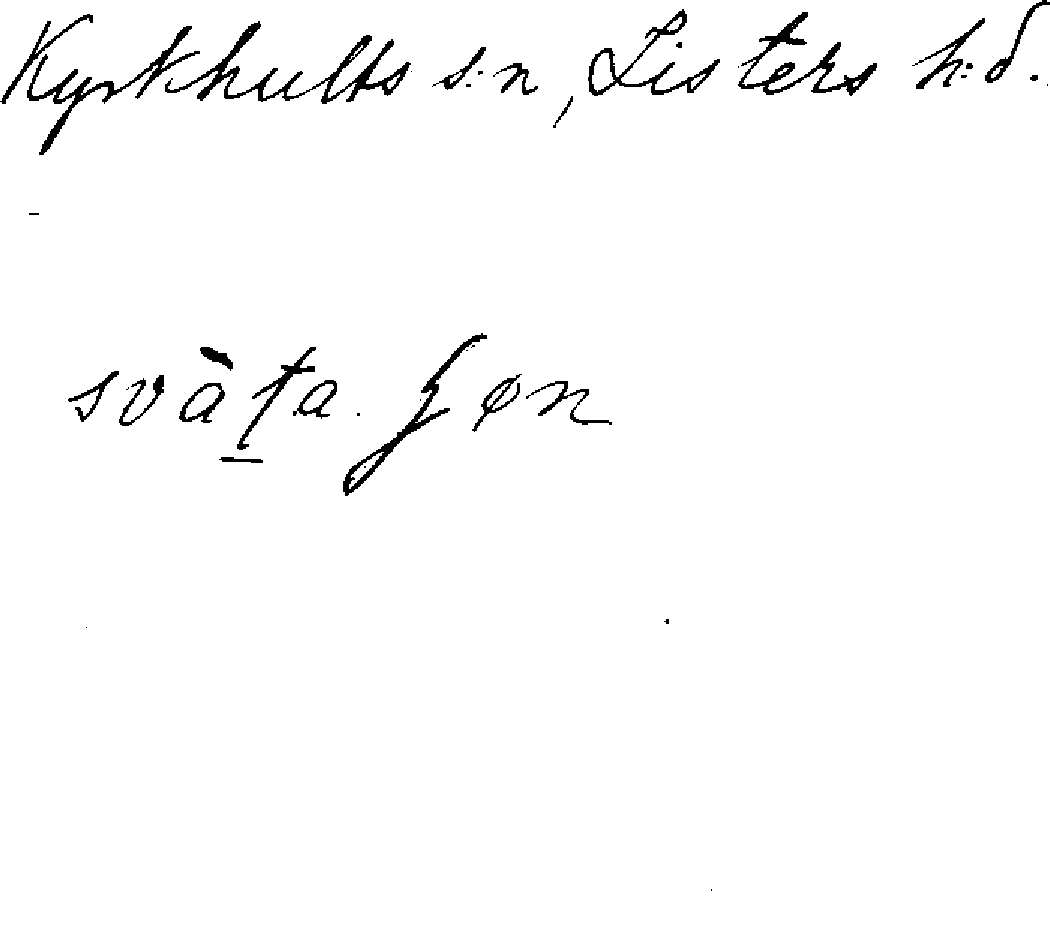 Kyrkhults s:n, Listers h:d.
svàt̠a ʒøn